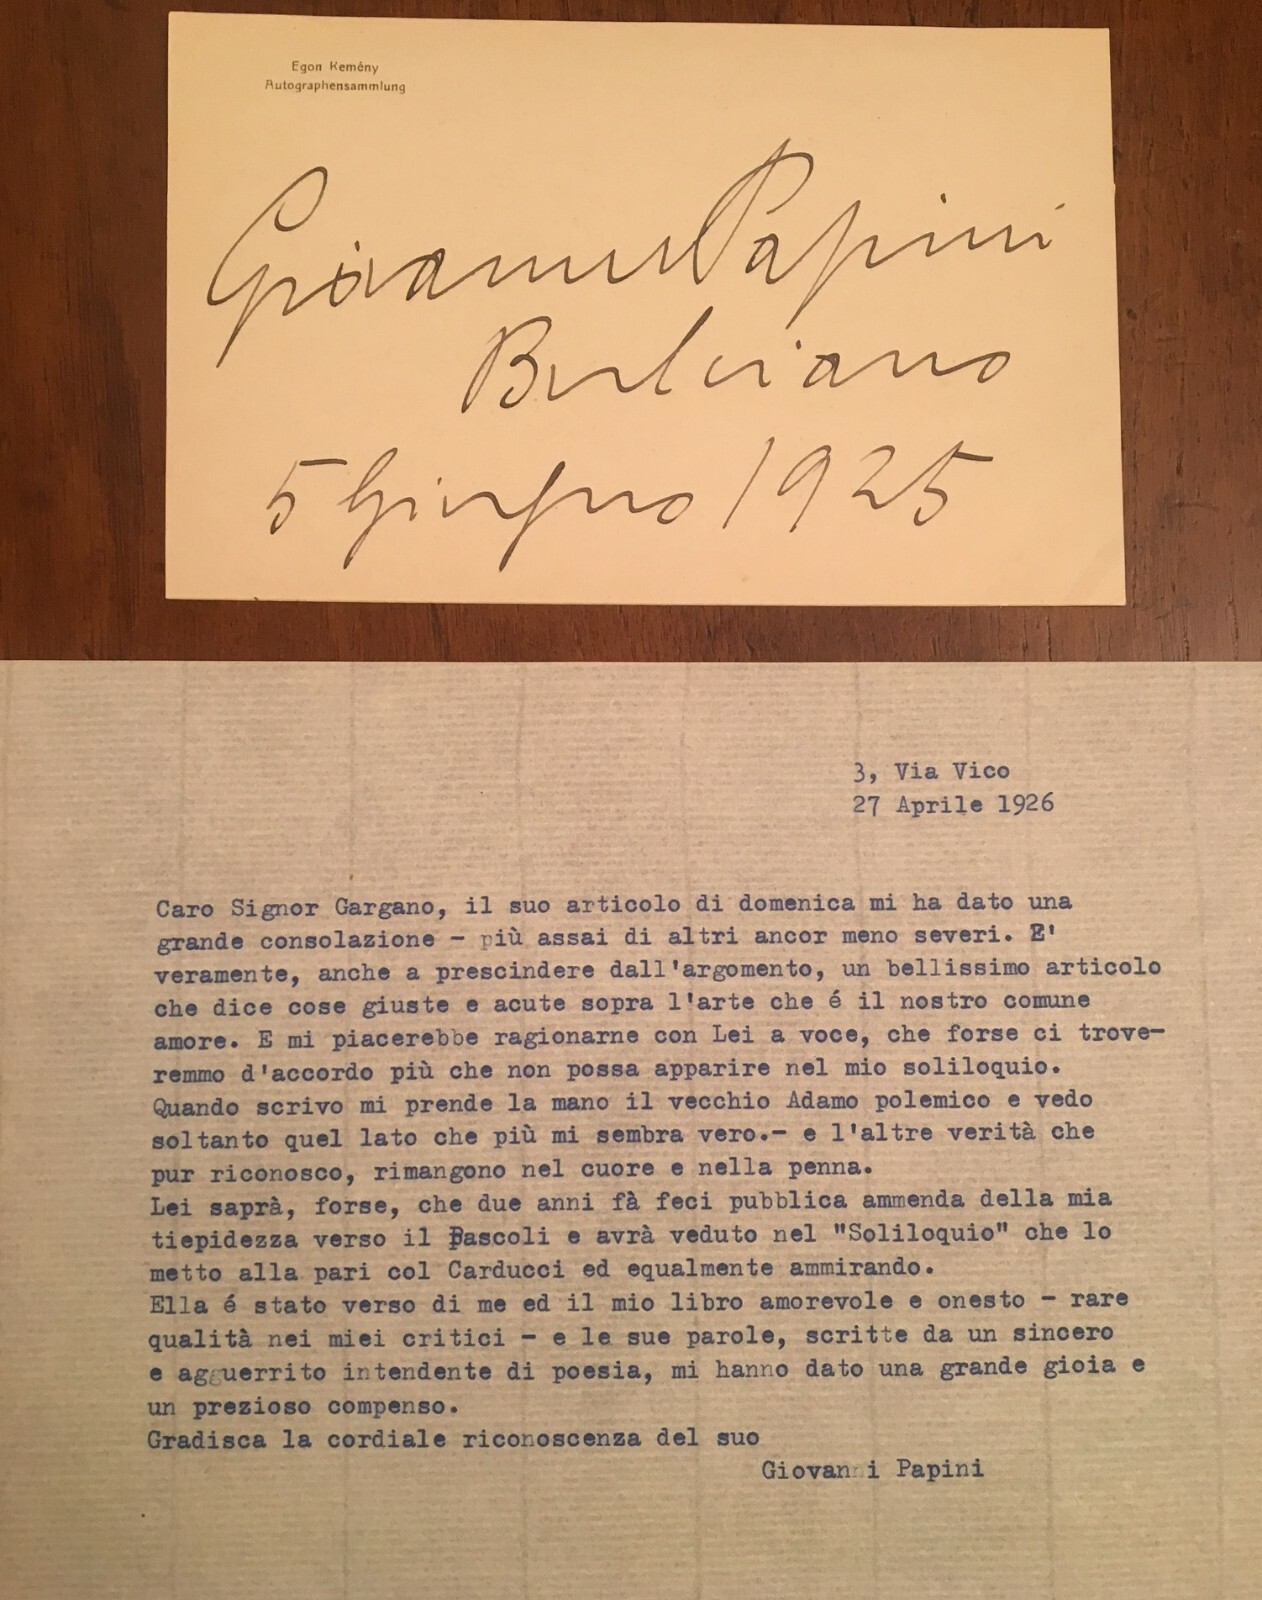 Egon Kemény
Autographensammlung
Giovanni Papini
Bulciano
5 Giugno 1925
3, Via Vico
27 Aprile 1926
Caro Signor Gargano, il suo articolo di domenica mi ha dato una
grande consolazione - più assai di altri ancor meno severi. E'
veramente, anche a prescindere dall'argomento, un bellissimo articolo
che dice cose giuste e acute sopra l'arte che é il nostro comune
amore. E mi piacerebbe ragionarne con Lei a voce, che forse ci trove-
remmo d'accordo più che non possa apparire nel mio soliloquio.
Quando scrivo mi prende la mano il vecchio Adamo polemico e vedo
soltanto quel lato che più mi sembra vero.- e l'altre verità che
pur riconosco, rimangono nel cuore e nella penna.
Lei saprà, forse, che due anni fà feci pubblica ammenda della mia
tiepidezza verso il Pascoli e avrà veduto nel "Soliloquio" che lo
metto alla pari col Carducci ed equalmente ammirando.
Ella é stato verso di me ed il mio libro amorevole e onesto - rare
qualità nei miei critici - e le sue parole, scritte da un sincero
e agguerrito intendente di poesia, mi hanno dato una grande gioia e
un prezioso compenso.
Gradisca la cordiale riconoscenza del suo
Giovanni Papini